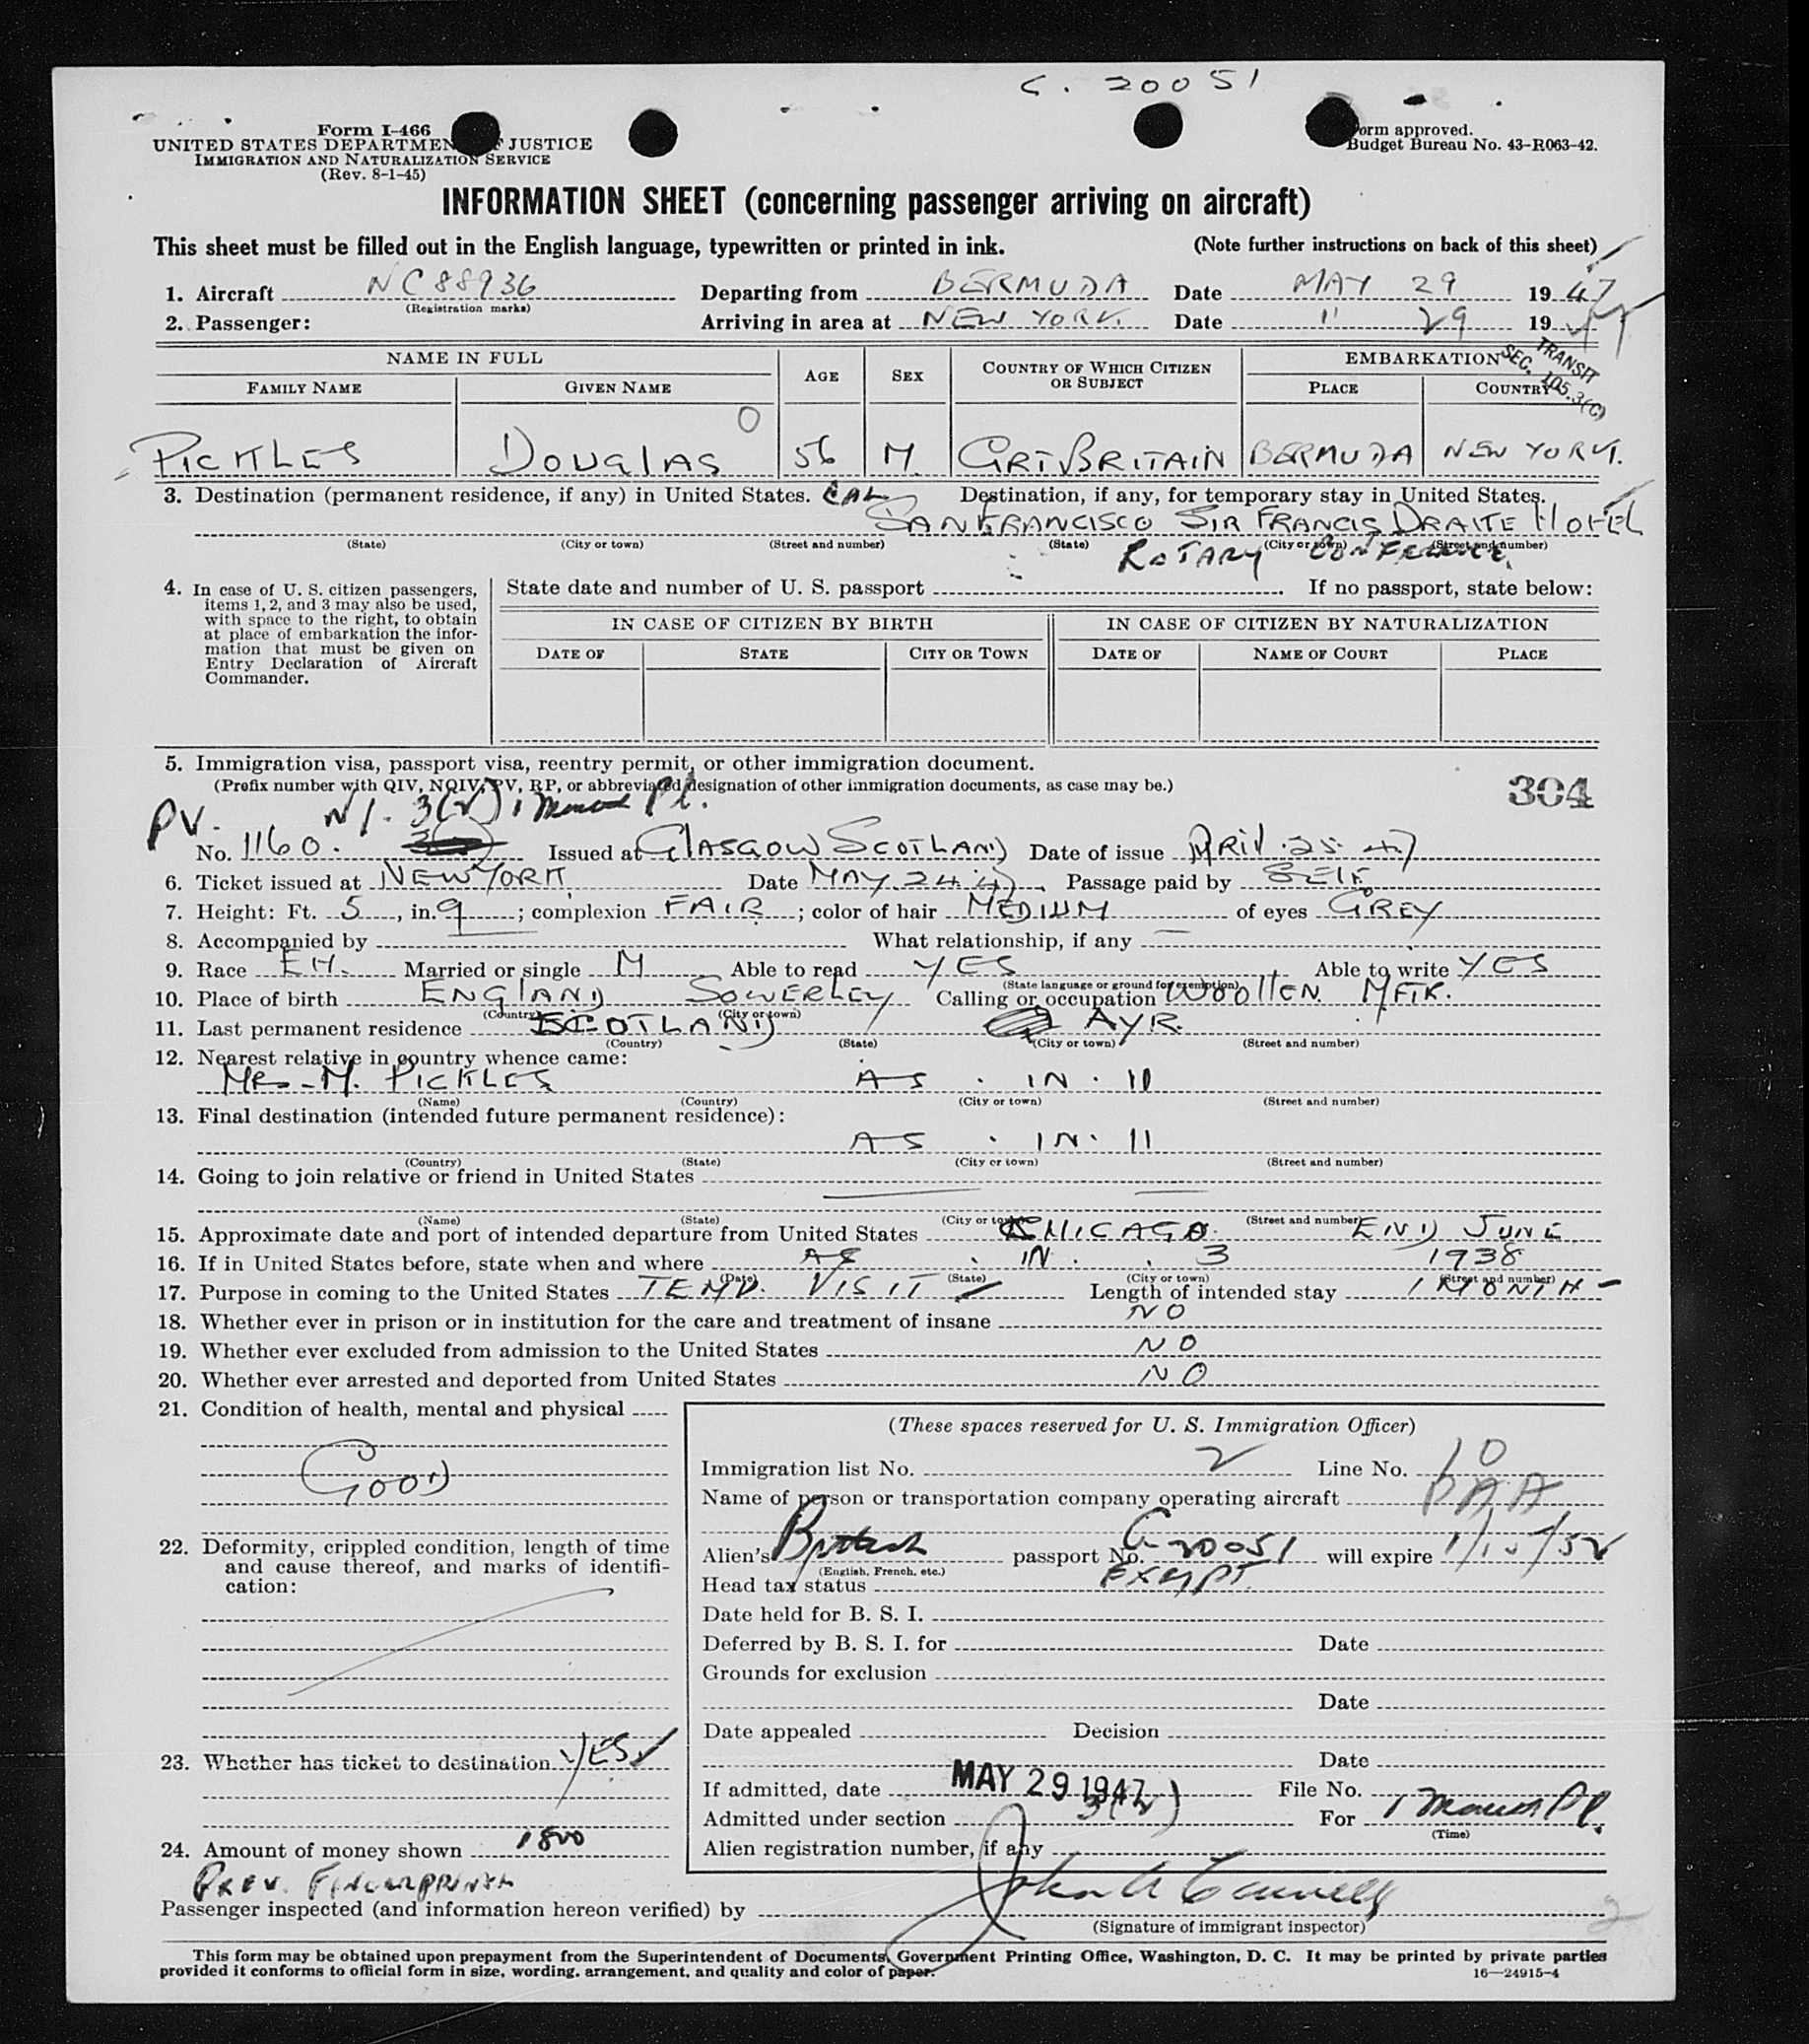 C. 20051
Form I-466
UNITED STATES DEPARTMENT OF JUSTICE
IMMIGRATION AND NATURALIZATION SERVICE
(Rev. 8-1-45)
Form approved.
Budget Bureau No. 43-R063-42.
INFORMATION SHEET (concerning passenger arriving on aircraft)
This sheet must be filled out in the English language, typewritten or printed in ink. (Note further instructions on back of this sheet)
1. Aircraft NC88936 Departing from BERMUDA Date MAY 29 1947
(Registration marks)
2. Passenger: Arriving in area at NEW YORK. Date " 29 19
TRANSIT
SEC. 105.3(C)
NAME IN FULL AGE SEX COUNTRY OF WHICH CITIZEN OR SUBJECT EMBARKATION
FAMILY NAME GIVEN NAME PLACE COUNTRY
0
PICKLES DOUGLAS 56 M. GRTBRITAIN BERMUDA NEW YORK.
3. Destination (permanent residence, if any) in United States. CAL Destination, if any, for temporary stay in United States.
SANFRANCISCO SIR FRANCIS DRAKE HOTEL
(State) (City or town) (Street and number) (State) (City or town) (Street and number)
ROTARY CONFERENCE.
4. In case of U. S. citizen passengers, items 1, 2, and 3 may also be used, with space to the right, to obtain at place of embarkation the information that must be given on Entry Declaration of Aircraft Commander.
State date and number of U. S. passport If no passport, state below:
IN CASE OF CITIZEN BY BIRTH IN CASE OF CITIZEN BY NATURALIZATION
DATE OF STATE CITY OR TOWN DATE OF NAME OF COURT PLACE
5. Immigration visa, passport visa, reentry permit, or other immigration document.
(Prefix number with QIV, NQIV, PV, RP, or abbreviated designation of other immigration documents, as case may be.)
304
PV. 3(2) 1 Pl.
No. 1160. Issued at GLASGOW SCOTLAND Date of issue APRIL .25. 47
6. Ticket issued at NEW YORK. Date MAY. 24 47. Passage paid by SELF
7. Height: Ft. 5, in. 9; complexion FAIR; color of hair MEDIUM of eyes GREY
8. Accompanied by What relationship, if any —
9. Race EH. Married or single M Able to read YES Able to write YES
(State language or ground for exemption)
10. Place of birth ENGLAND SOWERLEY Calling or occupation WOOLLEN MFTR.
(Country) (City or town)
11. Last permanent residence SCOTLAND AYR.
(Country) (State) (City or town) (Street and number)
12. Nearest relative in country whence came:
MRS. M. PICKLES AS . IN . 11
(Name) (Country) (City or town) (Street and number)
13. Final destination (intended future permanent residence):
AS . IN . 11
(Country) (State) (City or town) (Street and number)
14. Going to join relative or friend in United States
(Name) (State) (City or town) (Street and number)
15. Approximate date and port of intended departure from United States CHICAGO. END JUNE
16. If in United States before, state when and where AS . IN . . 3 1938
(Date) (State) (City or town) (Street and number)
17. Purpose in coming to the United States TEMP. VISIT Length of intended stay 1 MONTH
18. Whether ever in prison or in institution for the care and treatment of insane NO
19. Whether ever excluded from admission to the United States NO
20. Whether ever arrested and deported from United States NO
21. Condition of health, mental and physical
GOOD
22. Deformity, crippled condition, length of time and cause thereof, and marks of identification:
23. Whether has ticket to destination YES
24. Amount of money shown 1800
PREV. FINGERPRINTED
(These spaces reserved for U. S. Immigration Officer)
Immigration list No. 2 Line No. 10
Name of person or transportation company operating aircraft PAA
Alien's British passport No. C 20051 will expire 1/15/52
(English, French, etc.)
Head tax status EXEMPT.
Date held for B. S. I.
Deferred by B. S. I. for Date
Grounds for exclusion
Date
Date appealed Decision
Date
If admitted, date MAY 29 1947 File No.
Admitted under section 3(2) For 1 Pl.
(Time)
Alien registration number, if any
Passenger inspected (and information hereon verified) by John A
(Signature of immigrant inspector)
2
This form may be obtained upon prepayment from the Superintendent of Documents, Government Printing Office, Washington, D. C. It may be printed by private parties
provided it conforms to official form in size, wording, arrangement, and quality and color of paper.
16—24915-4